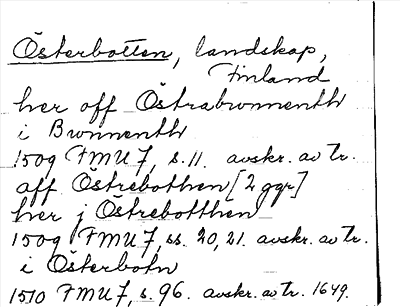 Österbotten, landskap,
Finland
her off Östrabonnenth
i Bonnenth
1509 FMU 7, s. 11. avskr. av tr.
aff Östrebothen [2 ggr]
her j Östrebotthen
1509 FMU 7, ss. 20, 21. avskr. av tr.
i Österbotn
1510 FMU 7, s. 96. avskr. av tr. 1649.